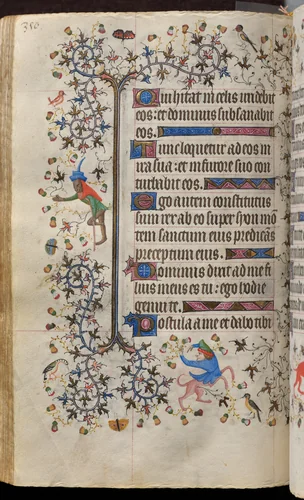 350
Qui habitat in celis irridebit
eos: et dominus subsanabit
eos.
Tunc loquetur ad eos in
ira sua: et in furore suo con
turbabit eos.
Ego autem constitutus
sum rex ab eo super syon mon
tem sanctum eius predicãs
preceptum eius.
Dominus dixit ad me fi
lius meus es tu: ego hodie
genui te.
Postula a me et dabo tibi